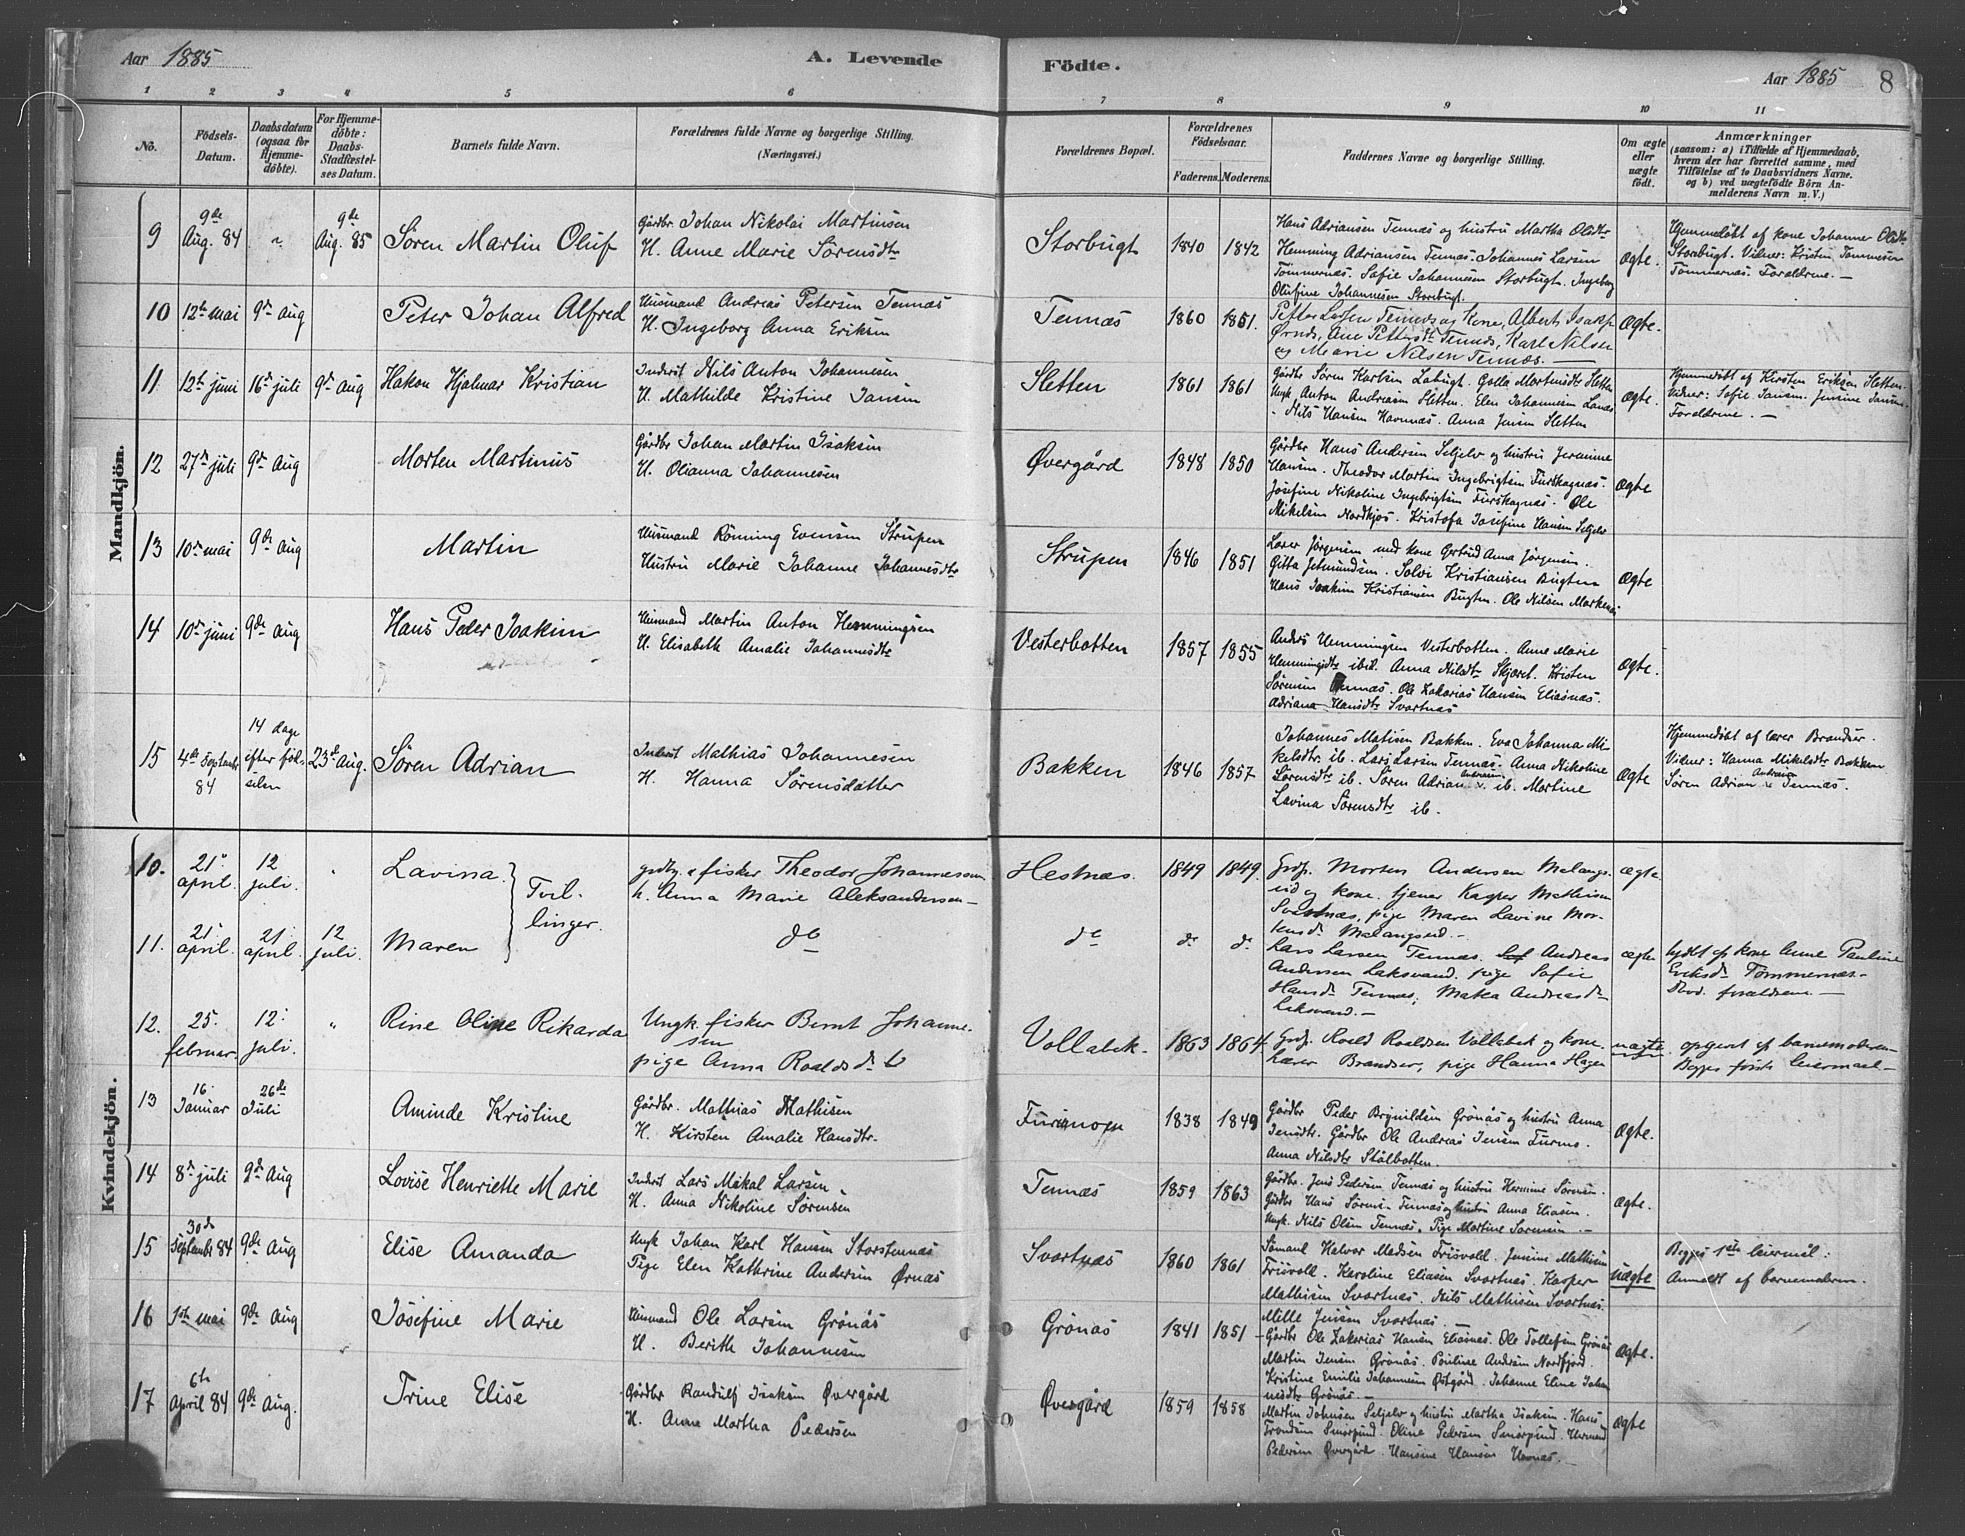 Aar 1885 A. Levende Födte. Aar 1885 8
1 2 3 4 5 6 7 8 9 10 11
No. Födsels-Datum. Daabsdatum (ogsaa for Hjemmedöbte). For Hjemmedöbte: Daabs-Stadfæstelses Datum. Barnets fulde Navn. Forældrenes fulde Navne og borgerlige Stilling. (Næringsvei.) Forældrenes Bopæl. Forældrenes Födselsaar. Faderens. Moderens. Faddernes Navne og borgerlige Stilling. Om ægte eller uægte födt. Anmærkninger (saasom: a) i Tilfælde af Hjemmedaab, hvem der har forrettet samme, med Tilföielse af to Daabsvidners Navne. og b) ved uægtefödte Börn Anmelderens Navn m. V.)
Mandkjön.
9 9de Aug. 84 " 9de Aug. 85 Sören Martin Oluf
Gårdbr Johan Nikolai Martinsen
H. Anne Marie Sörensdtr
Storbugt 1840 1842
Hans Adriansen Tennæs og hustru Martha Olsdtr
Hemming Adriansen Tennæs. Johannes Larsen
Tömmernæs. Sofie Johannesen Storbugt. Ingeborg
Olufine Johannesen Storbugt.
Ægte.
Hjemmedöbt af kone Johanna Olsdtr
Storbugt. Vidner: Kristen Tömmesen
Tömmernæs. Forældrene. —
10 12te mai 9de Aug Peter Johan Alfred
Husmand Andreas Petersen Tennæs
H. Ingeborg Anna Eriksen
Tennæs 1860 1851.
Petter Larsen Tennæs og Kone, Albert Isaks.
Ørnæs, Ane Pettersdt Tennæs, Karl Nilsen
og Marie Nilsen Tennæs. —
Ægte.
11 12te juni 16de juli 9de Aug Hakon Hjalmar Kristian
Inderst Nils Anton Johannesen
H. Mathilde Kristine Jansen
Sletten 1861 1861
Gårdbr Sören Karlsen Labugt. Golla Mortensdtr Sletten
Ungk. Anton Andreasen Sletten. Elen Johannesen Lanæs
- Nils Hansen Havnnæs. Anna Jensen Sletten
Ægte.
Hjemmedöbt af Kirsten Eriksen Sletten.
Vidner: Sofie Jansen. Jensine Jansen.
Forældrene. —
12 27de juli 9de Aug Morten Martinus
Gårdbr Johan Martin Isaksen
H. Olianna Johannesen
Øvergård 1848 1850
Gårdbr Hans Andersen Seljelv og hustru Jeramine
Hansen. Theodor Martin Ingebrigtsen Furskognæs.
Josefine Nikoline Ingebrigtsen Furskognæs. Ole
Mikelsen Nordkjos. Kristofa Josefine Hansen Seljelv
Ægte
13 10de mai 9de Aug Martin
Husmand Rönning Evensen Strupen
Hustru Marie Johanne Johannesdtr
Strupen 1846 1851
Lærer Jörgensen med kone Gertrud Anna Jörgensen.
Gitta Jetmundsen. Solvi Kristiansen Bugten
Hans Joakim Kristiansen Bugten. Ole Nilsen Markenes
Ægte
14 10de juni 9de Aug Hans Peder Joakim
Husmand Martin Anton Hemmingsen
H. Elisabeth Amalie Johannesdtr
Vesterbotten 1857 1855
Anders Hemmingsen Vesterbotten. Anne Marie
Hemmingsdtr ibid. Anna Nilsdtr Skjæret. Kristen
Sörensen Tennæs. Ole Zakarias Hansen Eliasnæs.
Adriana Hansdtr Svartnæs
Ægte.
15 4de September 84 14 dage efter fødselen 23de Aug. Sören Adrian
Inderst Mathias Johannesen
H. Hanna Sörensdatter
Bakken 1846 1857
Johannes Matisen Bakken. Eva Johanna Mi-
kelsdtr ib. Lars Larsen Tennæs. Anna Nikoline
Sörensdtr ib. Sören Adrian Andreasen ib. Martine
Lavina Sörensdtr ib.
Ægte
Hjemmedöbt af lærer Brandser.
Vidner: Hanna Mikelsdtr Bakken
Sören Adrian Andreasen Tennæs.
Kvindekjön.
10. 21de april. 12 juli. " Lavina } Tvillinger.
grdbr. & fisker Theodor Johannessen
h. Anna Marie Aleksandersen—
Hestnæs. 1849 1849.
Grdbr. Morten Andersen Melangs-
eid og kone. tjener Kasper Mathisen
Svartnæs, pige Maren Lavine Mor-
tensd. Melangseid.—
ægte
11. 21de april. 21de april. 12 juli. Maren
do do do do
Lars Larsen Tennæs. Andreas
Andersen Laksvand. pige Sofie
Hansd. Tennæs, Matea Andreasd.
Laksvand.—
ægte
hjdøbt af kone Anne Pauline
Eriksd. Tømmernæs.
Overv. forældrene.—
12. 25. februar. 12. juli. " Rine Oline Rikarda
Ungk. fisker Bernt Johanne-
sen
pige Anna Roaldsd.
Vollabek. 1863 1864.
Grdbr. Roald Roaldsen Vollabek og kone.
Lærer Brandser, pige Hanna Hagen
uægte
opgivet af barnemoderen—
Begges første leiermaal—
13 16 Januar 26de Juli Aminde Kristine
Gårdbr. Mathias Mathisen
H. Kirsten Amalie Hansdtr.
Furumoen 1838 1849
Gårdbr Peder Brynildsen Grönås og hustru Anna
Jensdtr. Gårdbr Ole Andreas Jensen Furmo.
Anna Nilsdtr Stålbotten.
Ægte.
14 8de juli 9de Aug Lovise Henriette Marie
Inderst Lars Mikal Larsen
H. Anna Nikoline Sörensen
Tennæs 1859 1863
Gårdbr. Jens Pedersen Tennæs og hustru Hermine Sörensen.
Gårdbr Hans Sörensen Tennæs og hustru Anna Eliasen.
Ungk. Nils Olsen Tennæs. Pige Martine Sörensen. —
Ægte.
15 30de September 84 9de Aug Elise Amanda
Ungk Johan Karl Hansen Storstennæs
Pige Elen Kathrine Andersen Ørnæs
Svartnæs 1860 1861
Sömand Halvor Madsen Frisvold. Jensine Mathisen
Frisvold. Karoline Eliasen Svartnæs. Kasper
Mathisen Svartnæs. Nils Mathisen Svartnæs.
Mille Jensen Svartnæs.
Uægte
Begges 1ste leiermål:
Anmeldt af barnemoderen.
16 1ste mai 9de Aug Josefine Marie
Husmand Ole Larsen Grönås
H. Berith Johannesen
Grönås 1841 1851
Gårdbr Ole Zakarias Hansen Eliasnæs. Ole Tollefsen Grönås
Martin Jensen Grönås. Pauline Andersen Nordfjord.
Kristine Emilie Johannesen Østgård. Johanne Eline Johan
nesdtr Grönås.—
Ægte.
17 6te April 84 9de Aug. Trine Elise
Gårdbr Randulf Isaksen Øvergård
H. Anne Martha Pedersen
Øvergård 1859 1858
Martin Johnsen Seljelv og hustru Martha Isaksen. Hans
Trondsen Smörsund. Oline Pedersen Smörsund. Herman
Pedersen Øvergård. Hansine Hansen Havnæs. —
Ægte